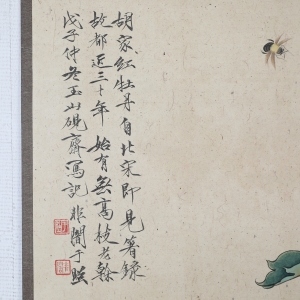 胡家红牡丹自北宋即見著錄
故都近三十年始有無高枝老幹
戊子仲冬玉山硯齋寫記非闇于照